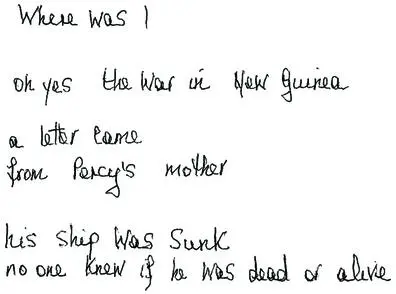 Where was I
oh yes the war in New Guinea
a letter came
from Percy's mother
his ship was sunk
no one knew if he was dead or alive